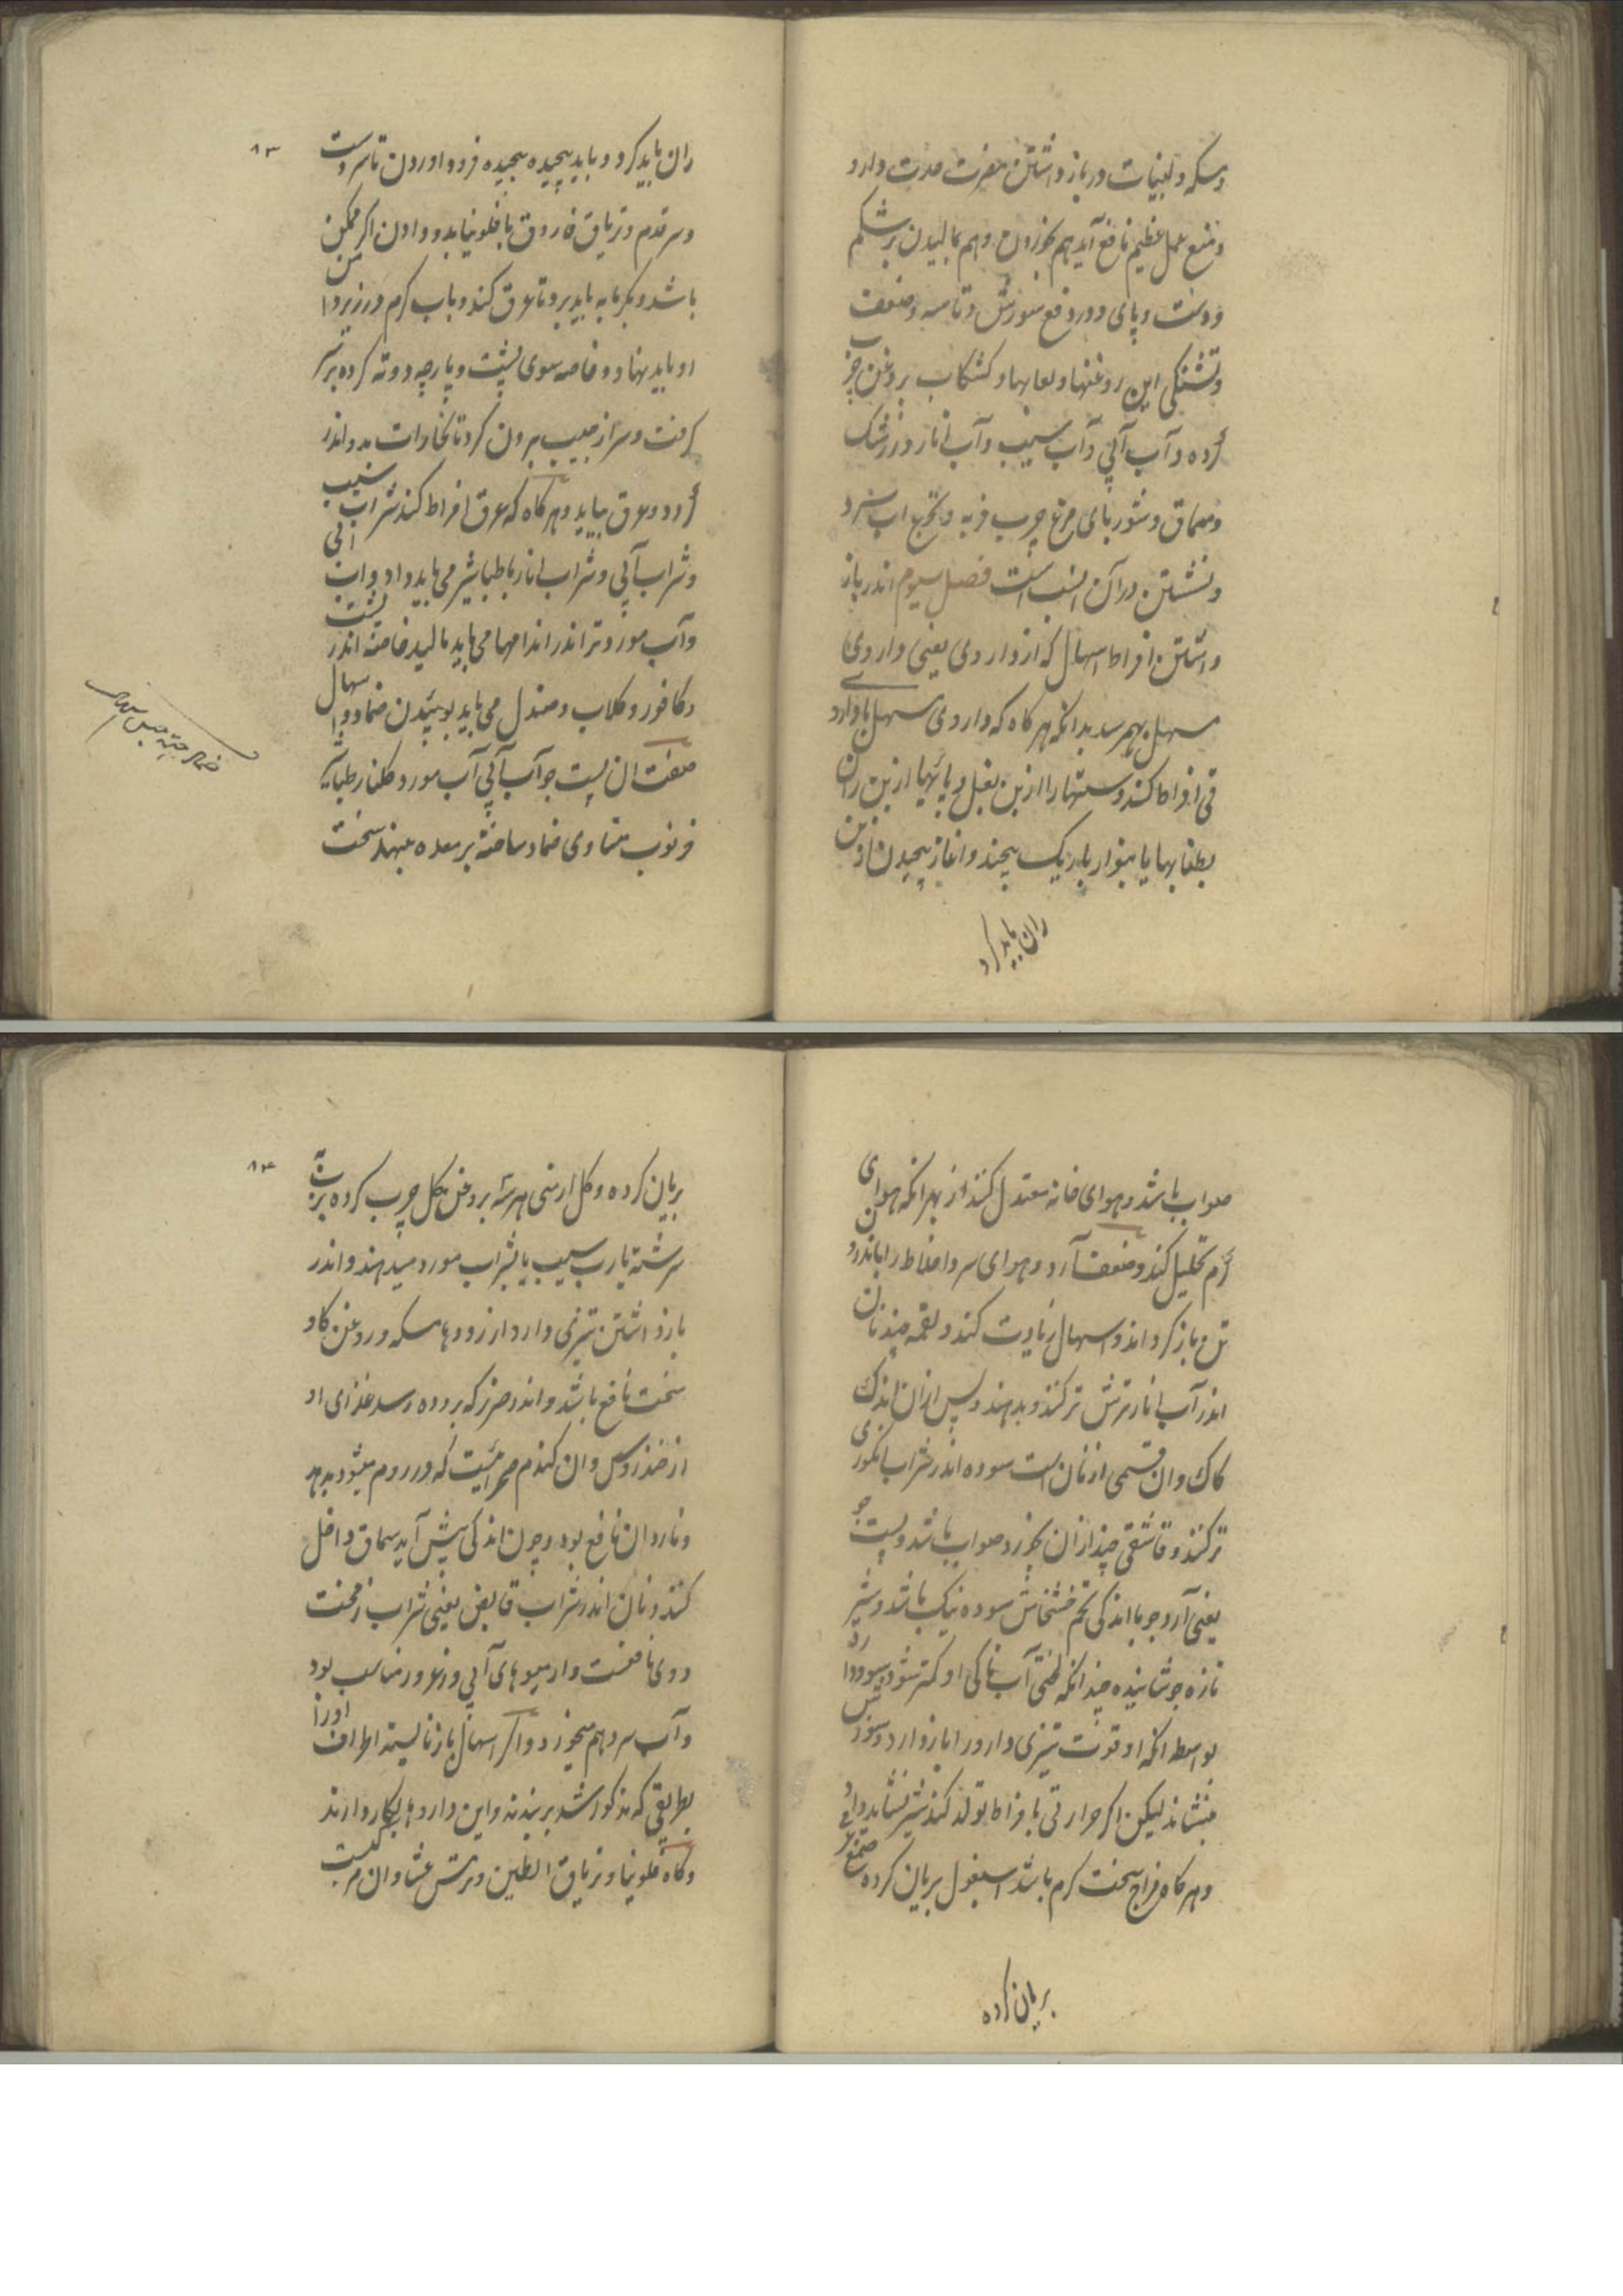 ومسکه و لبنیات در باز داشتن مضرت حدت دارو
و منع عمل عظیم نافع آید هم بخوردن و هم بمالیدن بر شکم
و دست و پای و در دفع سوزش و تاسه و ضعف
و تشنگی این روغنها و لعابها و کشکاب بروغن چرب
کرده و آب آبی و آب سیب و آب انار و زرشک
و سماق و شوربای مرغ چرب فربه و تجرع اب سرد
و نشستن در آن انسب است فصل سیوم اندر باز
داشتن افراط اسهال که از داروی یعنی داروی
مسهل بهم رسد بدانکه هرگاه که داروی مسهل یا داروی
قی افراط کند دستها را از بن بغل و پایها از بن ران
بطنابها یا بنوار باریک بپیچند و آغاز پیچیدن از بن
ران باید کرد
ران باید کرد و باید پیچیده پیچیده فرود اوردن تا سر دست
و سر قدم و تریاق فاروق یا فلونیا بدو دادن اکر ممکن
باشد و بکرمابه باید برد تا عرق کند و باب کرم در زیر دامن
او باید نهاد و خاصه سوی پشت و پارچه دوته کرده بر سر
کرفت و سر از جیب برون کرد تا بخارات بدو اندر
آرد و عرق بیاید و هرکاه که عرق افراط کند شراب سیب
و شراب آبی و شراب انار با طباشیر می باید داد و اب آبی
و آب مورد تر اندر اندامها می باید مالید خاصه اندر پشت
و کافور و کلاب و صندل می باید بوئیدن ضماد اسهال
صفت ان پست جو آب آبی آب مورد کلنار طباشیر
خرنوب مساوی ضماد ساخته بر معده نهند سخت
۸۳
صواب باشد و هوای خانه معتدل کنند از بهر انکه هوای
کرم تحلیل کند و ضعف آرد و هوای سرد اخلاط را باندرون
تن باز کرداند و اسهال زیادت کند و لقمه چند نان
اندر آب انار ترش تر کنند و بدهند و پس از ان اندک
کاک و ان قسمی از نان است سوده اندر شراب انکوری
تر کنند و قاشقی چند از ان بخورد صواب باشد و پست جو
یعنی آرد جو با اندکی تخم خشخاش سوده نیک باشد و شیر
تازه جوشانیده چندانکه لختی آب ناکی او کمتر شود سود دارد
بواسطه انکه او قوت تیزی دارو را باز دارد و سوزش
بنشاند لیکن اکر حرارتی با فراط تولد کند شیر نشاید داد
و هرکاه مزاج سخت کرم باشد اسبغول بریان کرده صمغ
بریان کرده
بریان کرده و کل ارمنی هر سه بروغن کل چرب کرده بر اب
سرشته با رب سیب یا بشراب مورد میدهند و اندر
باز داشتن تیزی دارو از روده ها مسکه و روغن کاو
سخت نافع باشد و اندر ضرر که بروده رسد غذای او
از خندروس و ان کندم صحرائیست که در روم میشود بدهد
و ناردان نافع بود و چون اندکی پیش آید سماق داخل
کنند و نان اندر شراب قابض یعنی شراب زمخت
و وی نافعست و از میوهای آبی و زعرور مناسب بود
و آب سرد هم میخورد و اکر اسهال باز نایستد اطراف اورا
بطریقی که مذکور شد بربندند و این داروها بکار دارند
و کاه فلونیا و تریاق الطین و برشعشا و ان مرکبست
۸۴